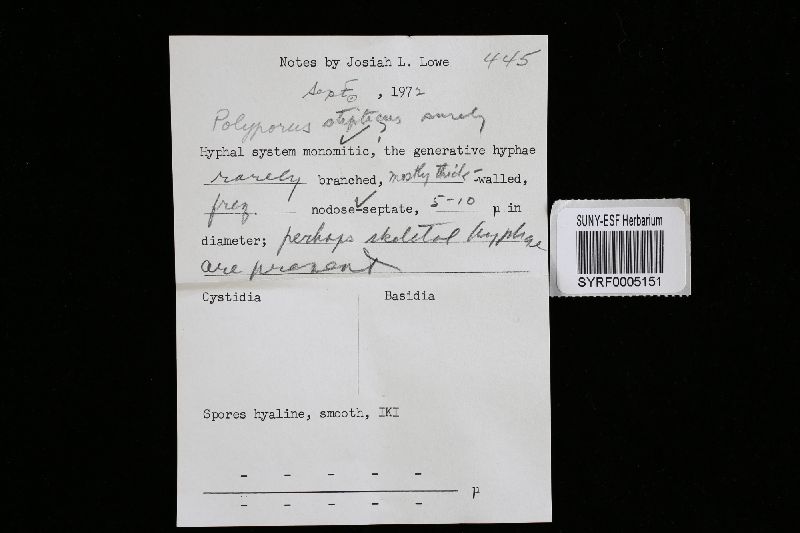 Notes by Josiah L. Lowe 445
Sept, 1972
Polyporus stipticus surely
Hyphal system monomitic, the generative hyphae
rarely branched, mostly thick-walled,
freq. nodose-septate, 5-10 µ in
diameter; perhaps skeletal hyphae
are present
Cystidia Basidia
Spores hyaline, smooth, IKI
- - - - -
µ
- - - - -
SUNY-ESF Herbarium
SYRF0005151